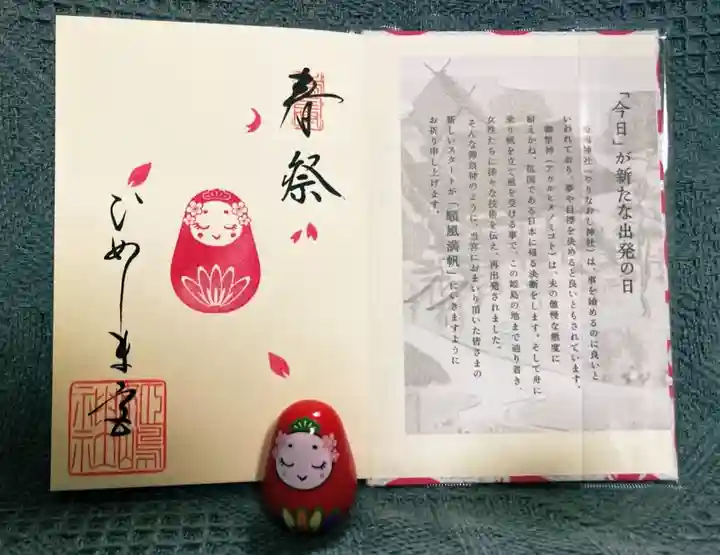 春祭
ひめしま宮
「今日」が新たな出発の日
姫嶋神社（やりなおし神社）は、事を始めるのに良いと
いわれており、夢や目標を決めると良いともされています。
御祭神（アカルヒメノミコト）は、夫の傲慢な態度に
耐えかね、祖国である日本に帰る決断をします。そして舟に
乗り帆を立て風を受ける事で、この姫島の地まで辿り着き、
女性たちに様々な技術を伝え、再出発されました。
そんな御祭神のように、当宮におまいり頂いた皆さまの
新しいスタートが「順風満帆」にいきますように
お祈り申し上げます。